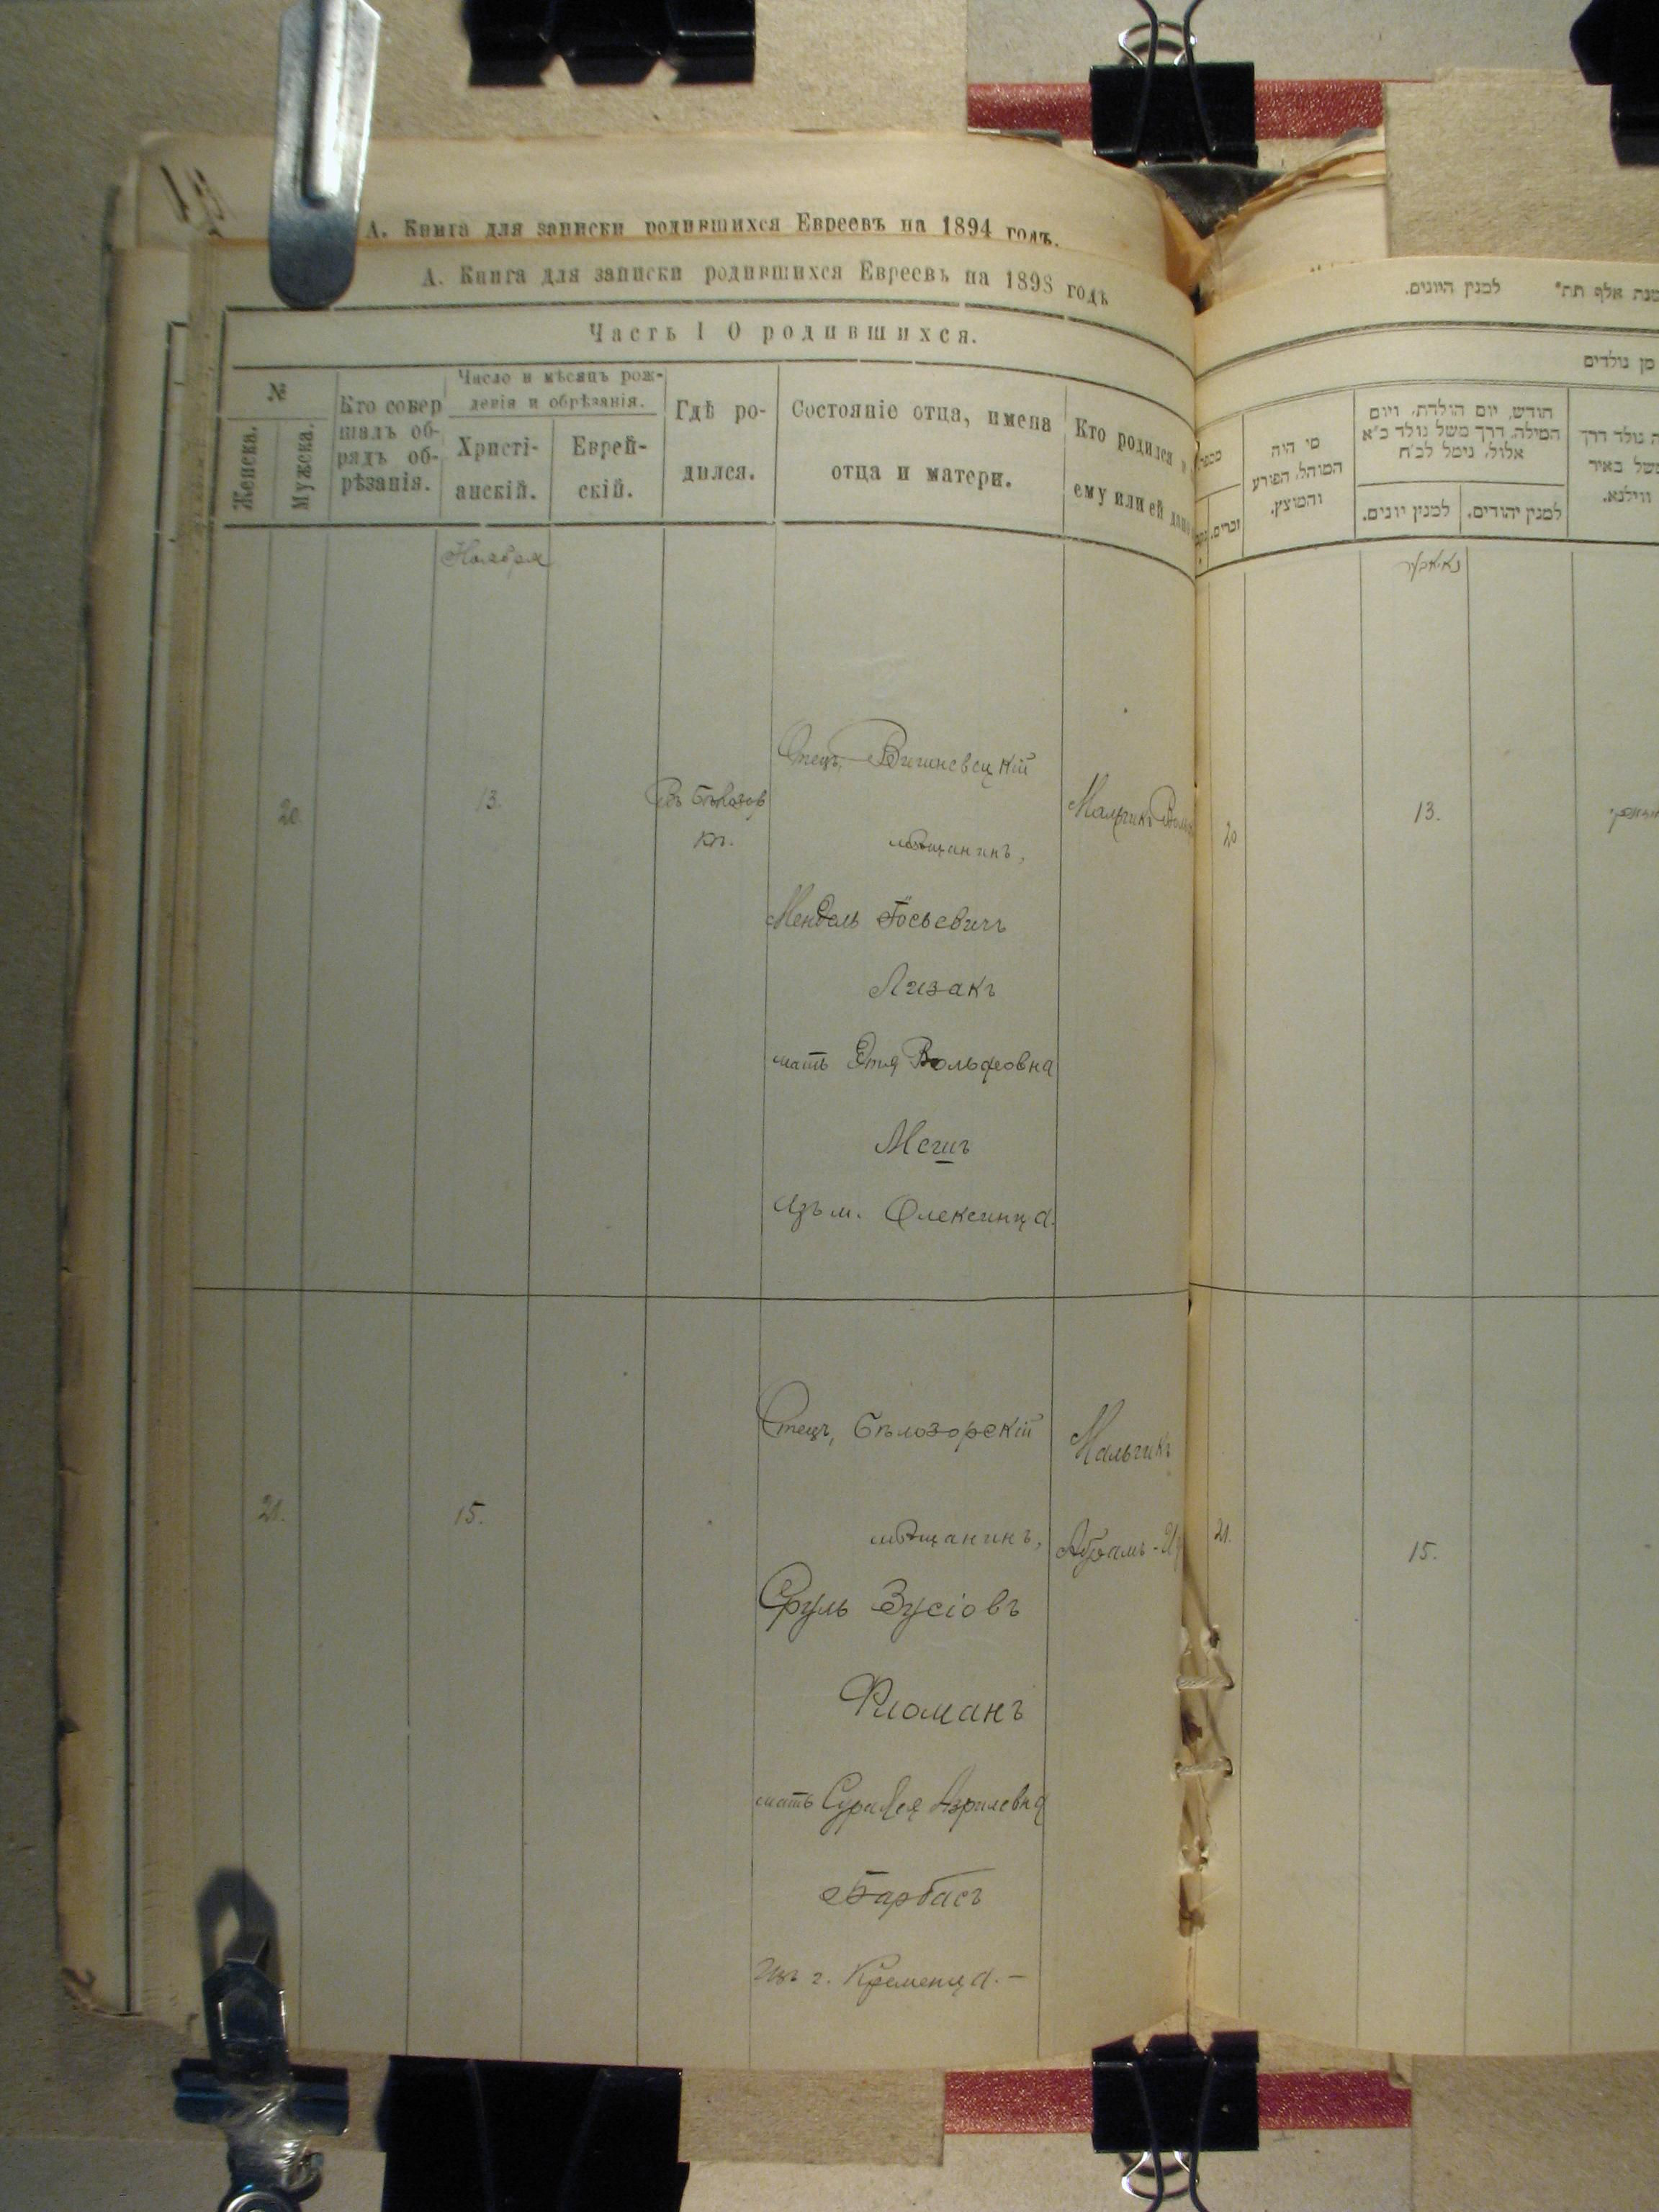 А. Книга для записки родившихся Евреевъ на 1894 годъ.
А. Книга для записки родившихся Евреевъ на 1898 годъ
Часть I О родившихся.
№
Женска.
Мужска.
Кто совер
шалъ об-
рядъ об-
рѣзанія.
Число и мѣсяцъ рож-
денія и обрѣзанія.
Христі-
анскій.
Еврей-
скій.
Гдѣ ро-
дился.
Состояніе отца, имена
отца и матери.
Кто родился и
ему или ей дано
Ноября
20.
13.
Въ
кѣ.
Отецъ, Вишневецкій
мѣщанинъ,
Мендель Іосьевичъ
Лизакъ
мать Этя Вольфовна
Мечъ
Изъ м. Олексинца.
Мальчикъ
21.
15.
Отецъ, Бѣлозорскій
мѣщанинъ,
Сруль Зусіовъ
Фломанъ
мать Сура Лея Азрилевна
Барбасъ
Изъ г. Кременца. —
Мальчикъ
Абрамъ-
למנין היונים.
שנת אלף תת"
מן נולדים
מי היה
המוהל, הפורע
והמוצץ.
חודש, יום הולדת, ויום
המילה, דרך משל נולד כ"א
אלול, נימל לכ"ח
למנין יונים.
למנין יהודים.
נולד דרך
משל באיר
ווילנא.
זכרים.
20
13.
21.
15.